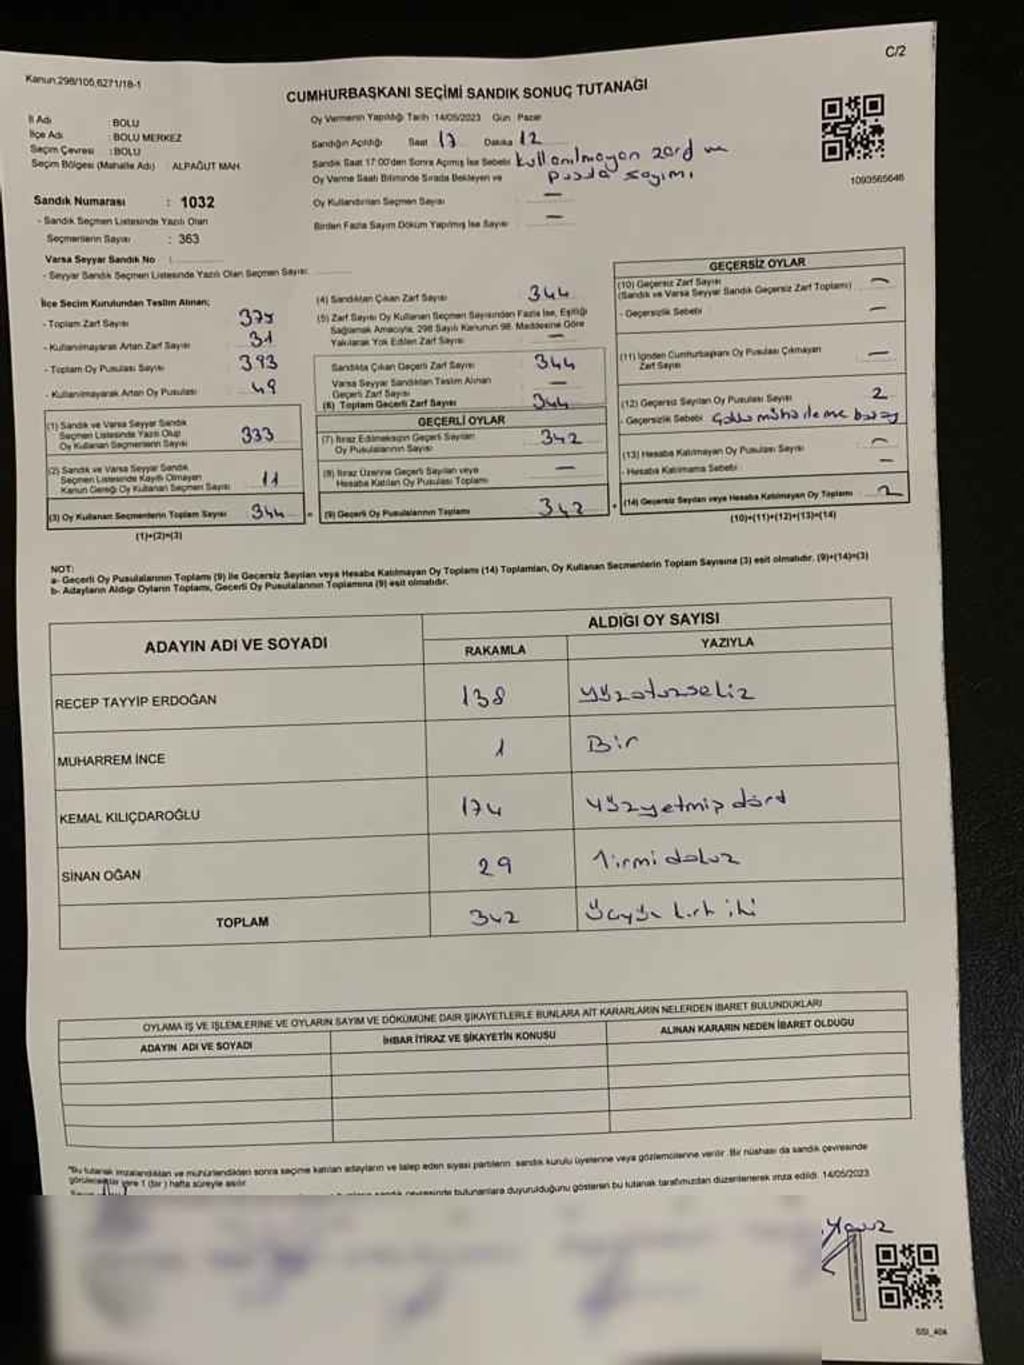 C/2
Kanun:298/105,6271/18-1
CUMHURBAŞKANI SEÇİMİ SANDIK SONUÇ TUTANAĞI
İl Adı : BOLU
İlçe Adı : BOLU MERKEZ
Seçim Çevresi : BOLU
Seçim Bölgesi (Mahalle Adı) ALPAĞUT MAH.
Oy Vermenin Yapıldığı Tarih :14/05/2023 Gün : Pazar
Sandığın Açıldığı Saat 17 Dakika 12
Sandık Saat 17:00'den Sonra Açılmış İse Sebebi kullanılmayan zarf ve
Oy Verme Saati Bitiminde Sırada Bekleyen ve pusula sayımı
Oy Kullandırılan Seçmen Sayısı —
Birden Fazla Sayım Döküm Yapılmış İse Sayısı —
1093565646
Sandık Numarası : 1032
- Sandık Seçmen Listesinde Yazılı Olan
Seçmenlerin Sayısı : 363
Varsa Seyyar Sandık No :
- Seyyar Sandık Seçmen Listesinde Yazılı Olan Seçmen Sayısı:
İlçe Seçim Kurulundan Teslim Alınan;
- Toplam Zarf Sayısı 375
- Kullanılmayarak Artan Zarf Sayısı 31
- Toplam Oy Pusulası Sayısı 393
- Kullanılmayarak Artan Oy Pusulası 49
(1) Sandık ve Varsa Seyyar Sandık
Seçmen Listesinde Yazılı Olup
Oy Kullanan Seçmenlerin Sayısı 333
(2) Sandık ve Varsa Seyyar Sandık
Seçmen Listesinde Kayıtlı Olmayan
Kanun Gereği Oy Kullanan Seçmen Sayısı 11
(3) Oy Kullanan Seçmenlerin Toplam Sayısı 344
(1)+(2)=(3)
(4) Sandıktan Çıkan Zarf Sayısı 344
(5) Zarf Sayısı Oy Kullanan Seçmen Sayısından Fazla İse, Eşitliği
Sağlamak Amacıyla, 298 Sayılı Kanunun 98. Maddesine Göre
Yakılarak Yok Edilen Zarf Sayısı —
Sandıkta Çıkan Geçerli Zarf Sayısı 344
Varsa Seyyar Sandıktan Teslim Alınan
Geçerli Zarf Sayısı —
(6) Toplam Geçerli Zarf Sayısı 344
GEÇERLİ OYLAR
(7) İtiraz Edilmeksizin Geçerli Sayılan
Oy Pusulalarının Sayısı 342
(8) İtiraz Üzerine Geçerli Sayılan veya
Hesaba Katılan Oy Pusulası Toplamı —
= (9) Geçerli Oy Pusulalarının Toplamı 342
GEÇERSİZ OYLAR
(10) Geçersiz Zarf Sayısı
(Sandık ve Varsa Seyyar Sandık Geçersiz Zarf Toplamı) —
- Geçersizlik Sebebi —
(11) İçinden Cumhurbaşkanı Oy Pusulası Çıkmayan
Zarf Sayısı —
(12) Geçersiz Sayılan Oy Pusulası Sayısı 2
- Geçersizlik Sebebi
(13) Hesaba Katılmayan Oy Pusulası Sayısı —
- Hesaba Katılmama Sebebi —
+ (14) Geçersiz Sayılan veya Hesaba Katılmayan Oy Toplamı 2
(10)+(11)+(12)+(13)=(14)
NOT:
a- Geçerli Oy Pusulalarının Toplamı (9) ile Geçersiz Sayılan veya Hesaba Katılmayan Oy Toplamı (14) Toplamları, Oy Kullanan Seçmenlerin Toplam Sayısına (3) eşit olmalıdır. (9)+(14)=(3)
b- Adayların Aldığı Oyların Toplamı, Geçerli Oy Pusulalarının Toplamına (9) eşit olmalıdır.
ADAYIN ADI VE SOYADI
ALDIĞI OY SAYISI
RAKAMLA YAZIYLA
RECEP TAYYİP ERDOĞAN 138 yüzotuzsekiz
MUHARREM İNCE 1 Bir
KEMAL KILIÇDAROĞLU 174 yüzyetmiş dört
SİNAN OĞAN 29 Yirmi dokuz
TOPLAM 342 Üçyüz kırk iki
OYLAMA İŞ VE İŞLEMLERİNE VE OYLARIN SAYIM VE DÖKÜMÜNE DAİR ŞİKAYETLERLE BUNLARA AİT KARARLARIN NELERDEN İBARET BULUNDUKLARI
ADAYIN ADI VE SOYADI İHBAR İTİRAZ VE ŞİKAYETİN KONUSU ALINAN KARARIN NEDEN İBARET OLDUĞU
"Bu tutanak imzalandıktan ve mühürlendikten sonra seçime katılan adayların ve talep eden siyasi partilerin sandık kurulu üyelerine veya gözlemcilerine verilir. Bir nüshası da sandık çevresinde
görülecek bir yere 1 (bir) hafta süreyle asılır.
sandık çevresinde bulunanlara duyurulduğunu gösteren bu tutanak tarafımızdan düzenlenerek imza edildi. 14/05/2023
Yavuz